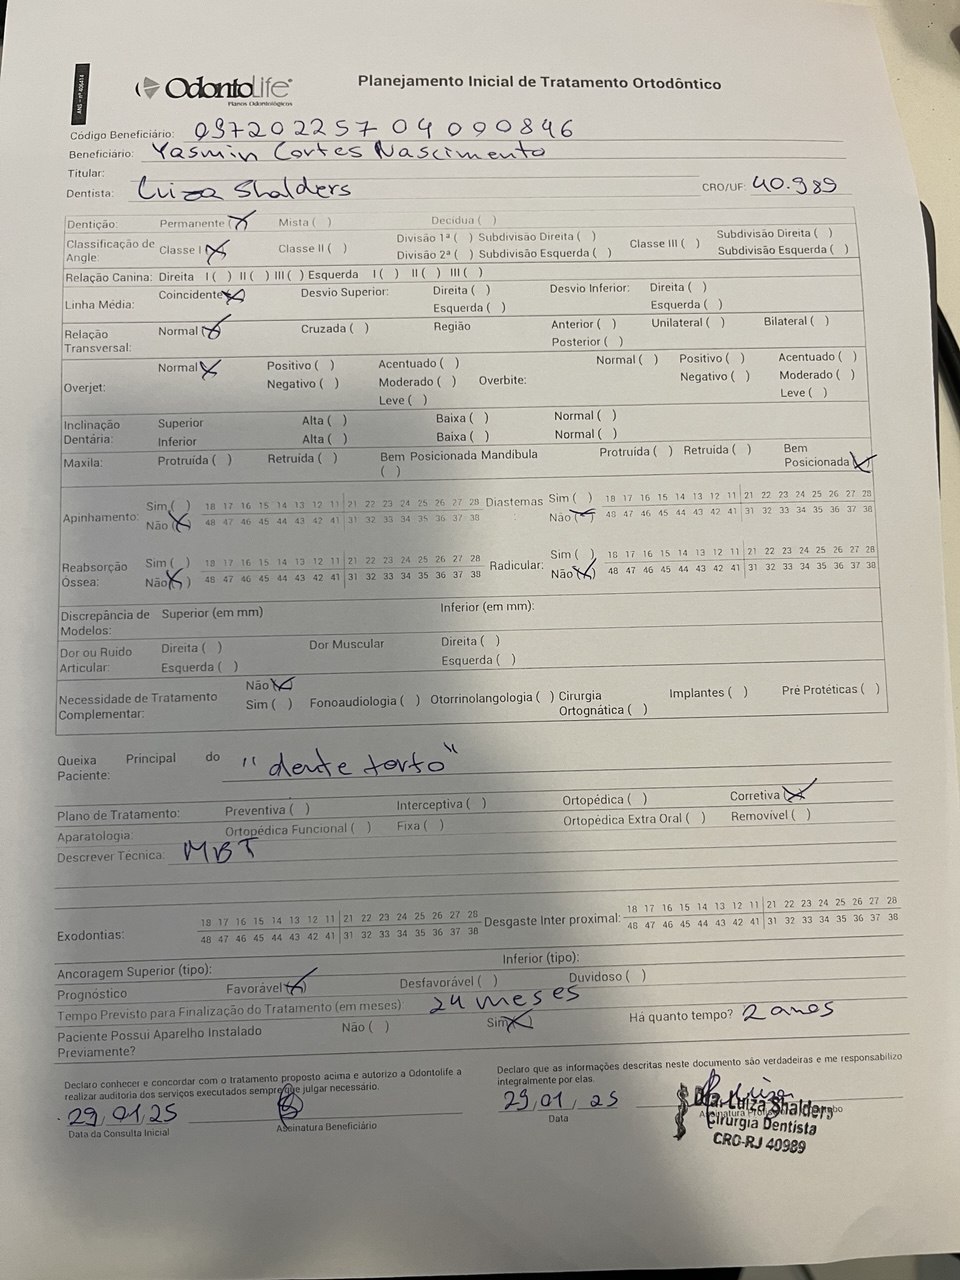 ANS - nº 406414
OdontoLife
Planos Odontológicos
Planejamento Inicial de Tratamento Ortodôntico
Código Beneficiário: 097202257 04 090846
Beneficiário: Yasmin Cortes Nascimento
Titular:
Dentista: Luiza Shalders CRO/UF: 40.989
Dentição: Permanente (X) Mista ( ) Decídua ( )
Classificação de Angle: Classe I (X) Classe II ( ) Divisão 1ª ( ) Subdivisão Direita ( ) Classe III ( ) Subdivisão Direita ( )
Divisão 2ª ( ) Subdivisão Esquerda ( ) Subdivisão Esquerda ( )
Relação Canina: Direita I ( ) II ( ) III ( ) Esquerda I ( ) II ( ) III ( )
Linha Média: Coincidente (X) Desvio Superior: Direita ( ) Desvio Inferior: Direita ( )
Esquerda ( ) Esquerda ( )
Relação Transversal: Normal (X) Cruzada ( ) Região Anterior ( ) Unilateral ( ) Bilateral ( )
Posterior ( )
Overjet: Normal (X) Positivo ( ) Acentuado ( ) Overbite: Normal ( ) Positivo ( ) Acentuado ( )
Negativo ( ) Moderado ( ) Negativo ( ) Moderado ( )
Leve ( ) Leve ( )
Inclinação Dentária: Superior Alta ( ) Baixa ( ) Normal ( )
Inferior Alta ( ) Baixa ( ) Normal ( )
Maxila: Protruída ( ) Retruída ( ) Bem Posicionada ( ) Mandíbula Protruída ( ) Retruída ( ) Bem Posicionada (X)
Apinhamento: Sim ( ) 18 17 16 15 14 13 12 11 21 22 23 24 25 26 27 28 Diastemas: Sim ( ) 18 17 16 15 14 13 12 11 21 22 23 24 25 26 27 28
Não (X) 48 47 46 45 44 43 42 41 31 32 33 34 35 36 37 38 Não (X) 48 47 46 45 44 43 42 41 31 32 33 34 35 36 37 38
Reabsorção Óssea: Sim ( ) 18 17 16 15 14 13 12 11 21 22 23 24 25 26 27 28 Radicular: Sim ( ) 18 17 16 15 14 13 12 11 21 22 23 24 25 26 27 28
Não (X) 48 47 46 45 44 43 42 41 31 32 33 34 35 36 37 38 Não (X) 48 47 46 45 44 43 42 41 31 32 33 34 35 36 37 38
Discrepância de Modelos: Superior (em mm) Inferior (em mm):
Dor ou Ruido Articular: Direita ( ) Dor Muscular Direita ( )
Esquerda ( ) Esquerda ( )
Necessidade de Tratamento Complementar: Não (X)
Sim ( ) Fonoaudiologia ( ) Otorrinolangologia ( ) Cirurgia Ortognática ( ) Implantes ( ) Pré Protéticas ( )
Queixa Principal do Paciente: "dente torto"
Plano de Tratamento: Preventiva ( ) Interceptiva ( ) Ortopédica ( ) Corretiva (X)
Aparatologia: Ortopédica Funcional ( ) Fixa ( ) Ortopédica Extra Oral ( ) Removível ( )
Descrever Técnica: MBT
Exodontias: 18 17 16 15 14 13 12 11 21 22 23 24 25 26 27 28 Desgaste Inter proximal: 18 17 16 15 14 13 12 11 21 22 23 24 25 26 27 28
48 47 46 45 44 43 42 41 31 32 33 34 35 36 37 38 48 47 46 45 44 43 42 41 31 32 33 34 35 36 37 38
Ancoragem Superior (tipo): Inferior (tipo):
Prognóstico Favorável (X) Desfavorável ( ) Duvidoso ( )
Tempo Previsto para Finalização do Tratamento (em meses): 24 meses
Paciente Possui Aparelho Instalado Previamente? Não ( ) Sim (X) Há quanto tempo? 2 anos
Declaro conhecer e concordar com o tratamento proposto acima e autorizo a Odontolife a
realizar auditoria dos serviços executados sempre que julgar necessário.
29/01/25
Data da Consulta Inicial Assinatura Beneficiário
Declaro que as informações descritas neste documento são verdadeiras e me responsabilizo
integralmente por elas.
29/01/25
Data
Dra. Luiza Shalders
Cirurgiã Dentista
CRO-RJ 40989